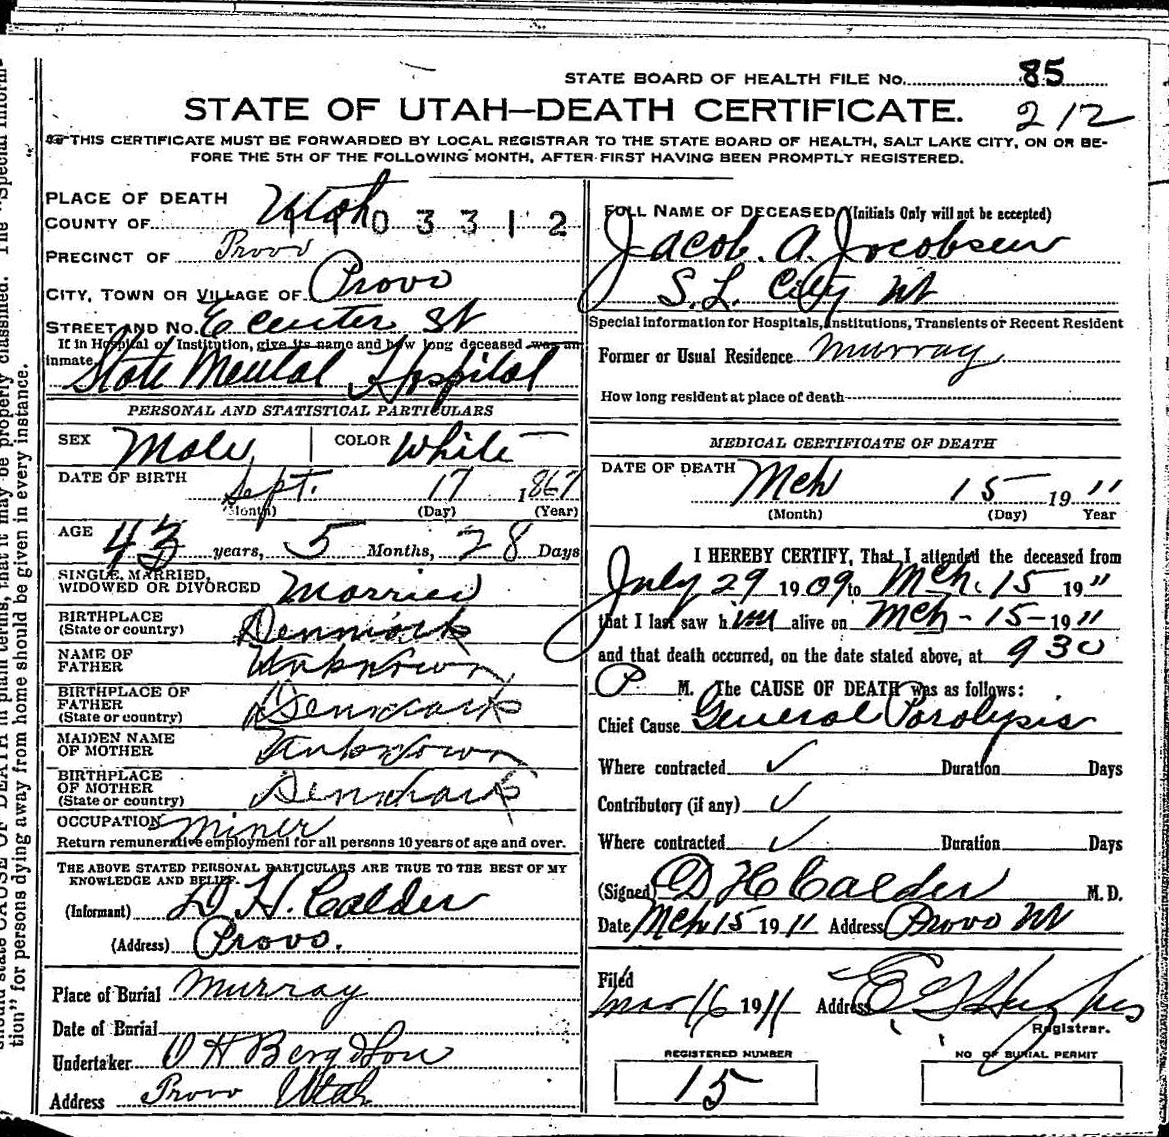 STATE BOARD OF HEALTH FILE No. 85
STATE OF UTAH—DEATH CERTIFICATE. 212
THIS CERTIFICATE MUST BE FORWARDED BY LOCAL REGISTRAR TO THE STATE BOARD OF HEALTH, SALT LAKE CITY, ON OR BE-
FORE THE 5TH OF THE FOLLOWING MONTH, AFTER FIRST HAVING BEEN PROMPTLY REGISTERED.
PLACE OF DEATH
COUNTY OF Utah 1103312
PRECINCT OF Provo
CITY, TOWN OR VILLAGE OF Provo
STREET AND No. E Center St
If in Hospital or Institution, give its name and how long deceased was an
inmate. State Mental Hospital
PERSONAL AND STATISTICAL PARTICULARS
SEX Male COLOR White
DATE OF BIRTH Sept. 17 1867
(Month) (Day) (Year)
AGE 43 years, 5 Months, 28 Days
SINGLE, MARRIED,
WIDOWED OR DIVORCED Married
BIRTHPLACE
(State or country) Denmark
NAME OF
FATHER Unknown
BIRTHPLACE OF
FATHER
(State or country) Denmark
MAIDEN NAME
OF MOTHER Unknown
BIRTHPLACE
OF MOTHER
(State or country) Denmark
OCCUPATION Miner
Return remunerative employment for all persons 10 years of age and over.
THE ABOVE STATED PERSONAL PARTICULARS ARE TRUE TO THE BEST OF MY
KNOWLEDGE AND BELIEF.
(Informant) D. H. Calder
(Address) Provo.
Place of Burial Murray
Date of Burial
Undertaker O H Berg & Son
Address Provo Utah
FULL NAME OF DECEASED (Initials Only will not be accepted)
Jacob. A. Jocobsen
S. L. City Ut
Special information for Hospitals, Institutions, Transients or Recent Resident
Former or Usual Residence Murray
How long resident at place of death
MEDICAL CERTIFICATE OF DEATH
DATE OF DEATH Mch 15 19 11
(Month) (Day) Year
I HEREBY CERTIFY, That I attended the deceased from
July 29 1909 to Mch. 15 19 11
that I last saw him alive on Mch - 15 - 19 11
and that death occurred, on the date stated above, at 930
P M. The CAUSE OF DEATH was as follows:
Chief Cause General Paralysis
Where contracted ✓ Duration Days
Contributory (if any) ✓
Where contracted ✓ Duration Days
(Signed) D H Calder M.D.
Date Mch 15 1911 Address Provo Ut
Filed
Mar 16 1911 Address E G Hughes
Registrar.
REGISTERED NUMBER NO OF BURIAL PERMIT
15
should state CAUSE OF DEATH in plain terms, that it may be properly classified. The "Special Inform-
tion" for persons dying away from home should be given in every instance.